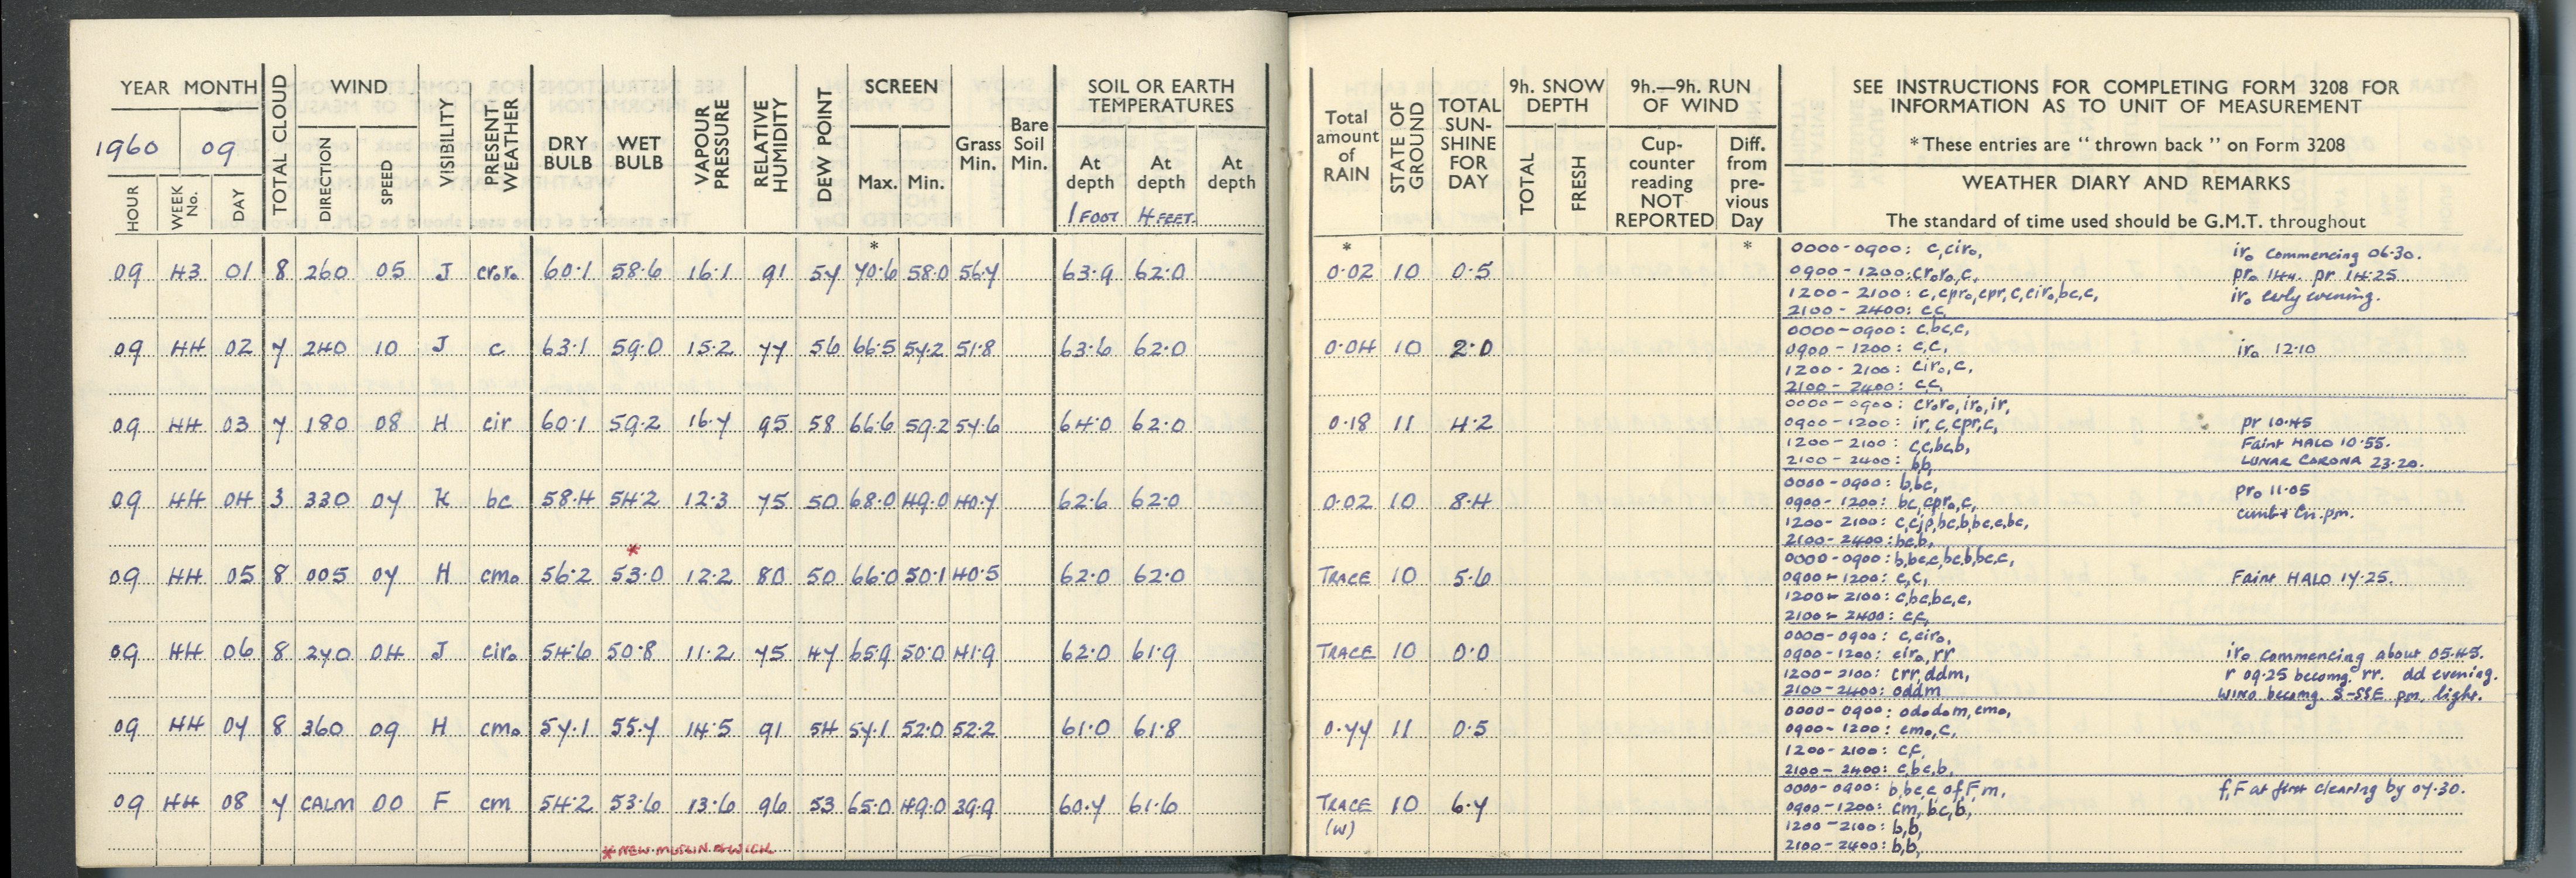 YEAR MONTH
1960 09
HOUR
WEEK No.
DAY
TOTAL CLOUD
WIND
DIRECTION
SPEED
VISIBILITY
PRESENT WEATHER
DRY BULB
WET BULB
VAPOUR PRESSURE
RELATIVE HUMIDITY
DEW POINT
SCREEN
Max. Min.
Grass Min.
Bare Soil Min.
SOIL OR EARTH
TEMPERATURES
At depth At depth At depth
1 FOOT 4 FEET.
*
09 43 01 8 260 05 J cr₀r₀ 60·1 58·6 16·1 91 57 70·6 58·0 56·7 63·9 62·0
09 44 02 7 240 10 J c 63·1 59·0 15·2 77 56 66·5 57·2 51·8 63·6 62·0
09 44 03 7 180 08 H cir 60·1 59·2 16·7 95 58 66·6 59·2 57·6 64·0 62·0
09 44 04 3 330 07 K bc 58·4 54·2 12·3 75 50 68·0 49·0 40·7 62·6 62·0
*
09 44 05 8 005 07 H cm₀ 56·2 53·0 12·2 80 50 66·0 50·1 40·5 62·0 62·0
09 44 06 8 270 04 J cir₀ 54·6 50·8 11·2 75 47 65·9 50·0 41·9 62·0 61·9
09 44 07 8 360 09 H cm₀ 57·1 55·7 14·5 91 54 57·1 52·0 52·2 61·0 61·8
09 44 08 7 CALM 00 F cm 54·2 53·6 13·6 96 53 65·0 49·0 39·9 60·7 61·6
* NEW MUSLIN & WICK
Total amount of RAIN
STATE OF GROUND
TOTAL SUN-SHINE FOR DAY
9h. SNOW DEPTH
TOTAL
FRESH
9h.—9h. RUN OF WIND
Cup-counter reading NOT REPORTED
Diff. from pre-vious Day
SEE INSTRUCTIONS FOR COMPLETING FORM 3208 FOR
INFORMATION AS TO UNIT OF MEASUREMENT
* These entries are "thrown back" on Form 3208
WEATHER DIARY AND REMARKS
The standard of time used should be G.M.T. throughout
* *
0·02 10 0·5
0000-0900: c,cir₀, ir₀ commencing 06·30.
0900-1200: cr₀r₀,c, pr₀ 144. pr 14·25
1200-2100: c,cpr₀,cpr,c,cir₀,bc,c, ir₀ early evening.
2100-2400: cc,
0·04 10 2·0
0000-0900: c,bc,c,
0900-1200: c,c, ir₀ 12·10
1200-2100: cir₀,c,
2100-2400: cc,
0·18 11 4·2
0000-0900: cr₀r₀,ir₀,ir,
0900-1200: ir,c,cpr,c, pr 10·45
1200-2100: c,c,bc,b, Faint HALO 10·55.
2100-2400: bb, LUNAR CORONA 23·20.
0·02 10 8·4
0000-0900: b,bc, pr₀ 11·05
0900-1200: bc,cpr₀,c, cumb+ Cn. pm.
1200-2100: c,cjp,bc,b,bc,c,bc,
2100-2400: bc,b,
TRACE 10 5·6
0000-0900: b,bc,c,bc,b,bc,c,
0900-1200: c,c, Faint HALO 17·25.
1200-2100: c,bc,bc,c,
2100-2400: cc,
TRACE 10 0·0
0000-0900: c,cir₀,
0900-1200: cir₀,rr ir₀ commencing about 05·45.
1200-2100: crr,ddm, r 09·25 becomg. rr. dd evening.
2100-2400: oddm WIND becomg. S-SSE pm. light.
0·77 11 0·5
0000-0900: od₀d₀m,cm₀,
0900-1200: cm₀,c,
1200-2100: cc,
2100-2400: c,bc,b,
TRACE 10 6·7
(W)
0000-0900: b,bc,c of F m, f,F at first clearing by 07·30.
0900-1200: cm,bc,b,
1200-2100: b,b,
2100-2400: b,b,